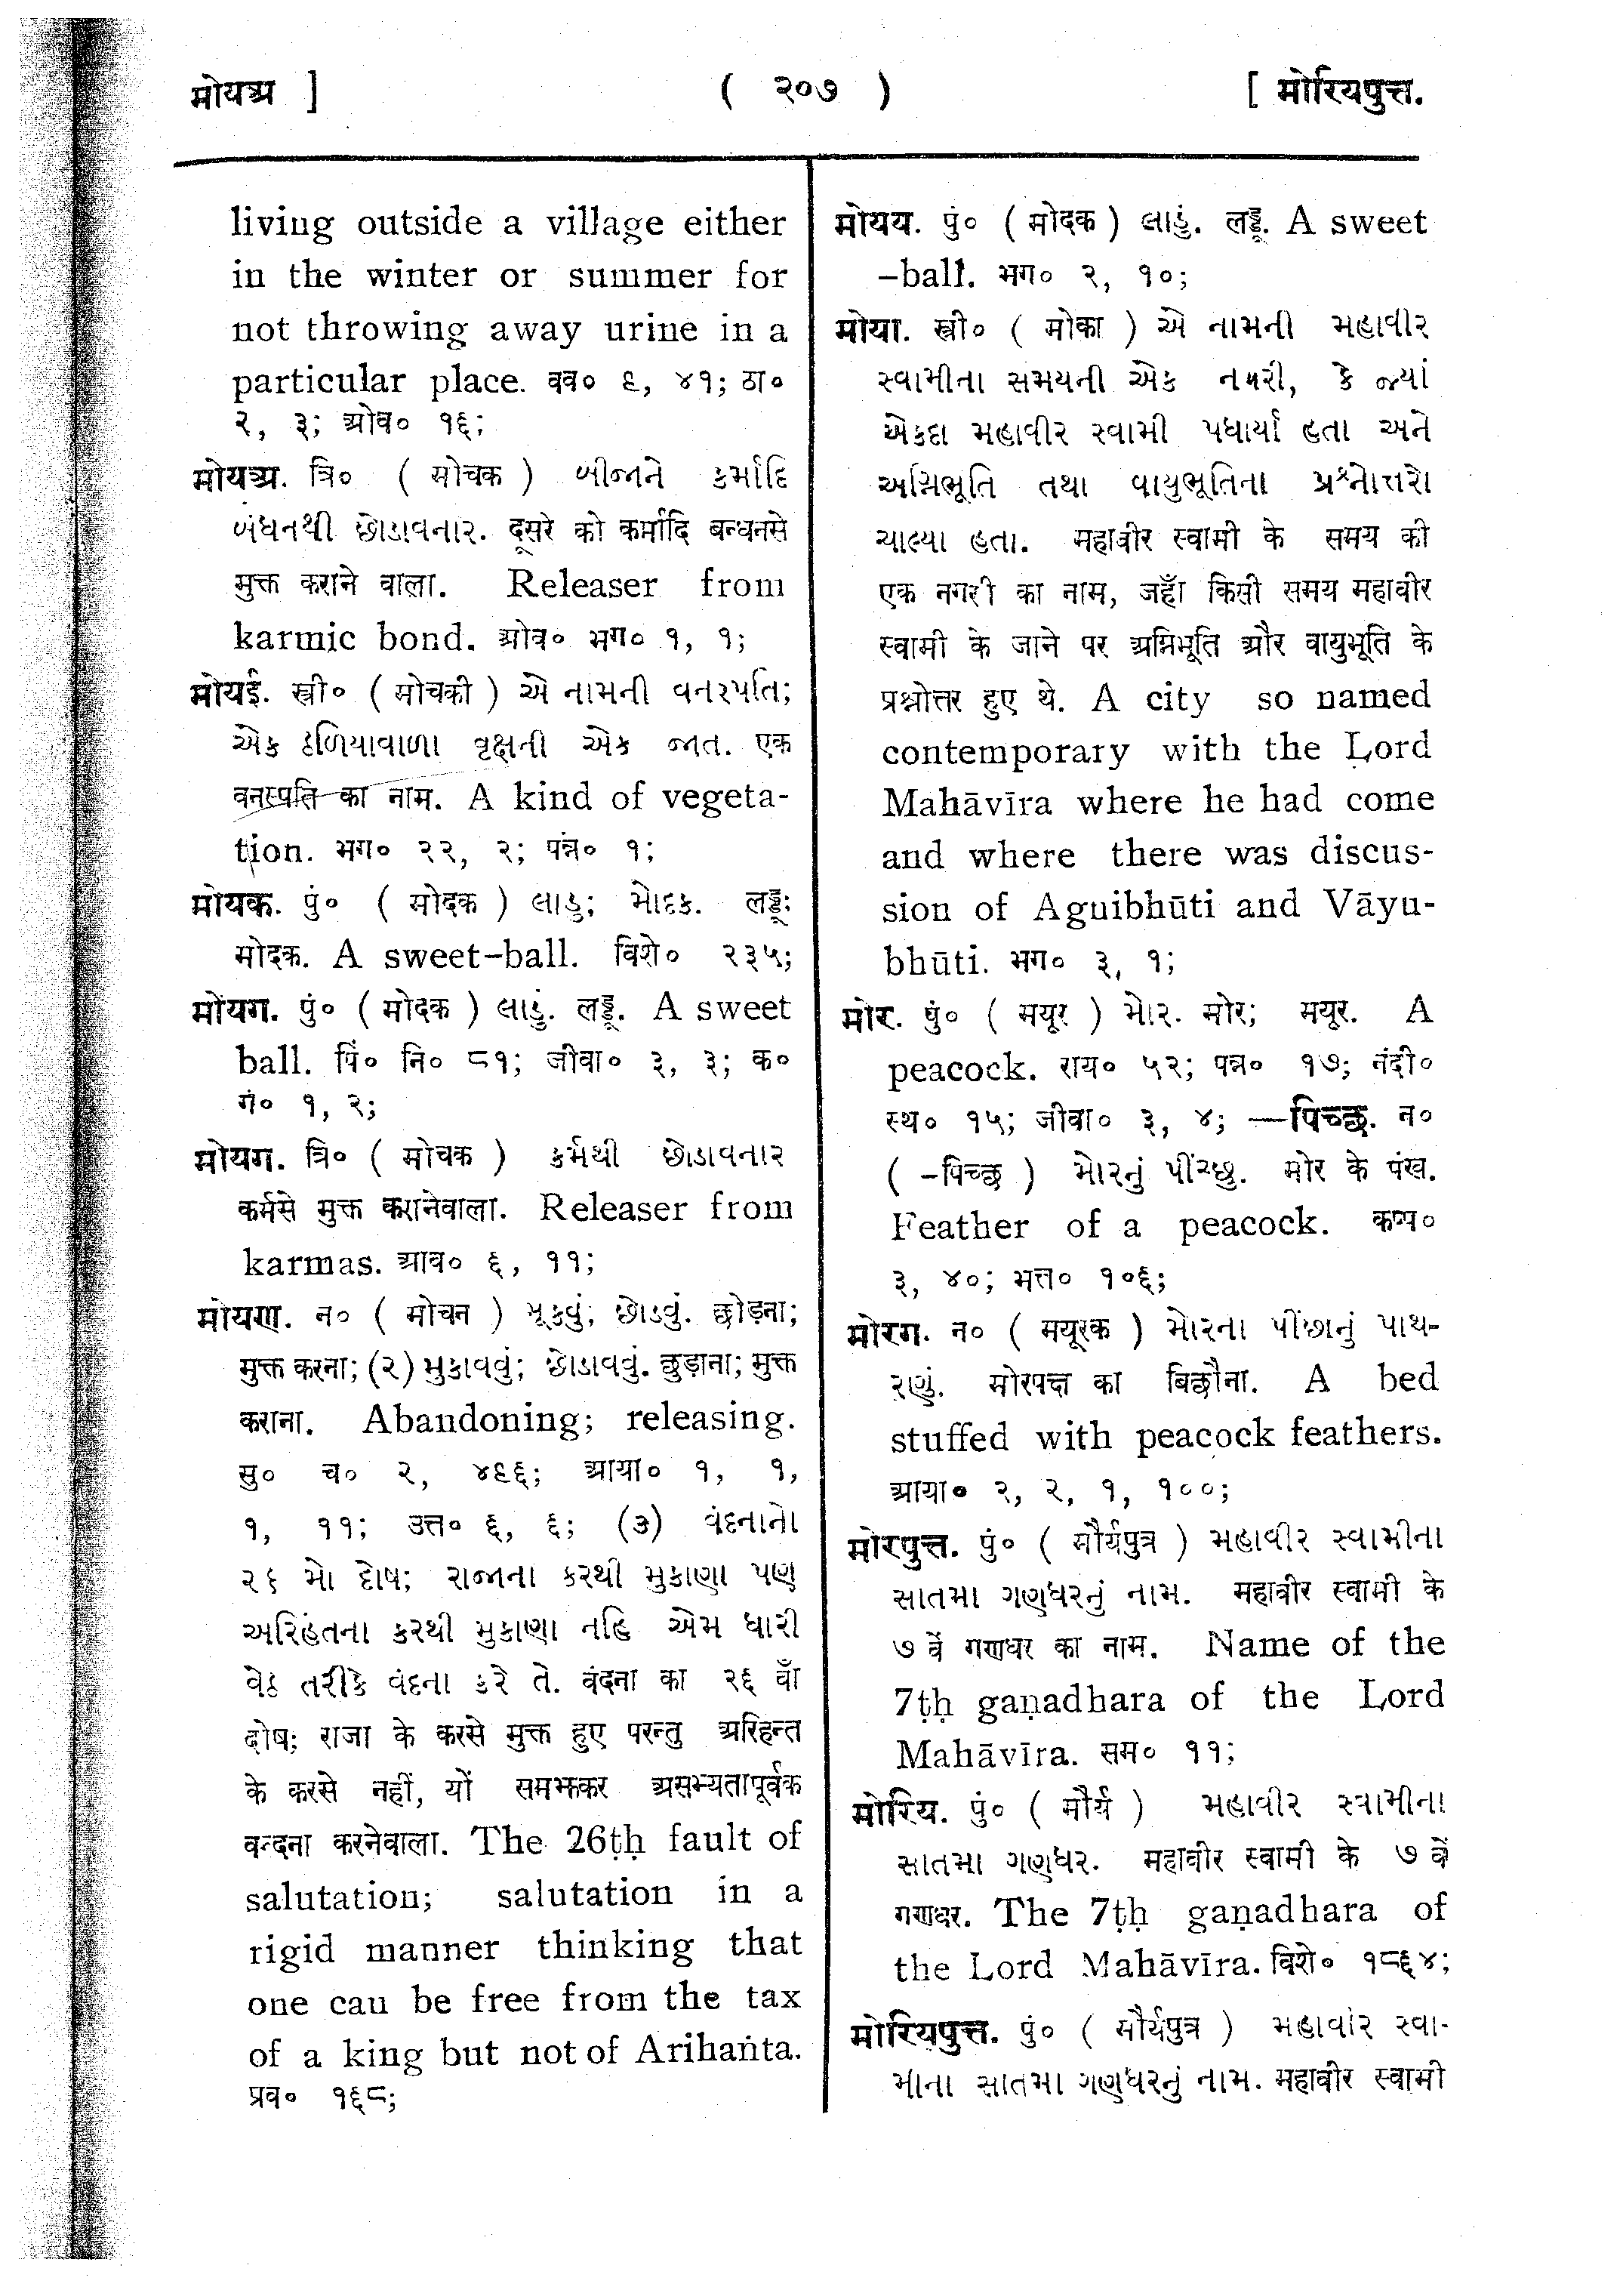 मोयअ ]
( २०७ )
[ मोरियपुत्त.
living outside a village either
in the winter or summer for
not throwing away urine in a
particular place. वव० ९, ४१; ठा०
२, ३; ओव० १६;
मोयअ. त्रि० ( मोचक ) બીજાને કર્માદિ
બંધનથી છોડાવનાર. दूसरे को कर्मादि बन्धनसे
मुक्त कराने वाला. Releaser from
karmic bond. ओव० भग० १, १;
मोयई. स्त्री० ( मोचकी ) એ નામની વનસ્પતિ;
એક ઠળિયાવાળા વૃક્ષની એક જાત. एक
वनस्पति का नाम. A kind of vegeta-
tion. भग० २२, २; पन्न० १;
मोयक. पुं० ( मोदक ) લાડુ; મોદક. लड्डू;
मोदक. A sweet-ball. विशे० २३५;
मोयग. पुं० ( मोदक ) લાડું. लड्डू. A sweet
ball. पिं० नि० ८१; जीवा० ३, ३; क०
गं० १, २;
मोयग. त्रि० ( मोचक ) કર્મથી છોડાવનાર
कर्मसे मुक्त करानेवाला. Releaser from
karmas. आव० ६, ११;
मोयण. न० ( मोचन ) મૂકવું; છોડવું. छोड़ना;
मुक्त करना; (२) મુકાવવું; છોડાવવું. छुड़ाना; मुक्त
कराना. Abandoning; releasing.
सु० च० २, ४९६; आया० १, १,
१, ११; उत्त० ६, ६; (૩) વંદનાનો
૨૬ મો દોષ; રાજાના કરથી મુકાણા પણ
અરિહંતના કરથી મુકાણા નહિ એમ ધારી
વેઠ તરીકે વંદના કરે તે. वंदना का २६ वाँ
दोष; राजा के करसे मुक्त हुए परन्तु अरिहन्त
के करसे नहीं, यों समझकर असभ्यतापूर्वक
वन्दना करनेवाला. The 26ṭḥ fault of
salutation; salutation in a
rigid manner thinking that
one cau be free from the tax
of a king but not of Arihaṅta.
प्रव० १६८;
मोयय. पुं० ( मोदक ) લાડું. लड्डू. A sweet
-ball. भग० २, १०;
मोया. स्त्री० ( मोका ) એ નામની મહાવીર
સ્વામીના સમયની એક નગરી, કે જ્યાં
એકદા મહાવીર સ્વામી પધાર્યા હતા અને
અગ્નિભૂતિ તથા વાયુભૂતિના પ્રશ્નોત્તરો
ચાલ્યા હતા. महावीर स्वामी के समय की
एक नगरी का नाम, जहाँ किसी समय महावीर
स्वामी के जाने पर अग्निभूति और वायुभूति के
प्रश्नोत्तर हुए थे. A city so named
contemporary with the Lord
Mahāvīra where he had come
and where there was discus-
sion of Aguibhūti and Vāyu-
bhūti. भग० ३, १;
मोर. पुं० ( मयूर ) મોર. मोर; मयूर. A
peacock. राय० ५२; पन्न० १७; नंदी०
स्थ० १५; जीवा० ३, ४; —पिच्छ. न०
( -पिच्छ ) મોરનું પીંચ્છુ. मोर के पंख.
Feather of a peacock. कप्प०
३, ४०; भत्त० १०६;
मोरग. न० ( मयूरक ) મોરના પીંછાનું પાથ-
રણું. मोरपक्ष का बिछौना. A bed
stuffed with peacock feathers.
आया० २, २, १, १००;
मोरपुत्त. पुं० ( मौर्यपुत्र ) મહાવીર સ્વામીના
સાતમા ગણધરનું નામ. महावीर स्वामी के
७ वें गणधर का नाम. Name of the
7ṭḥ gaṇadhara of the Lord
Mahāvīra. सम० ११;
मोरिय. पुं० ( मौर्य ) મહાવીર સ્વામીના
સાતમા ગણધર. महावीर स्वामी के ७ वें
गणधर. The 7ṭḥ gaṇadhara of
the Lord Mahāvīra. विशे० १८६४;
मोरियपुत्त. पुं० ( मौर्यपुत्र ) મહાવીર સ્વા-
મીના સાતમા ગણધરનું નામ. महावीर स्वामी